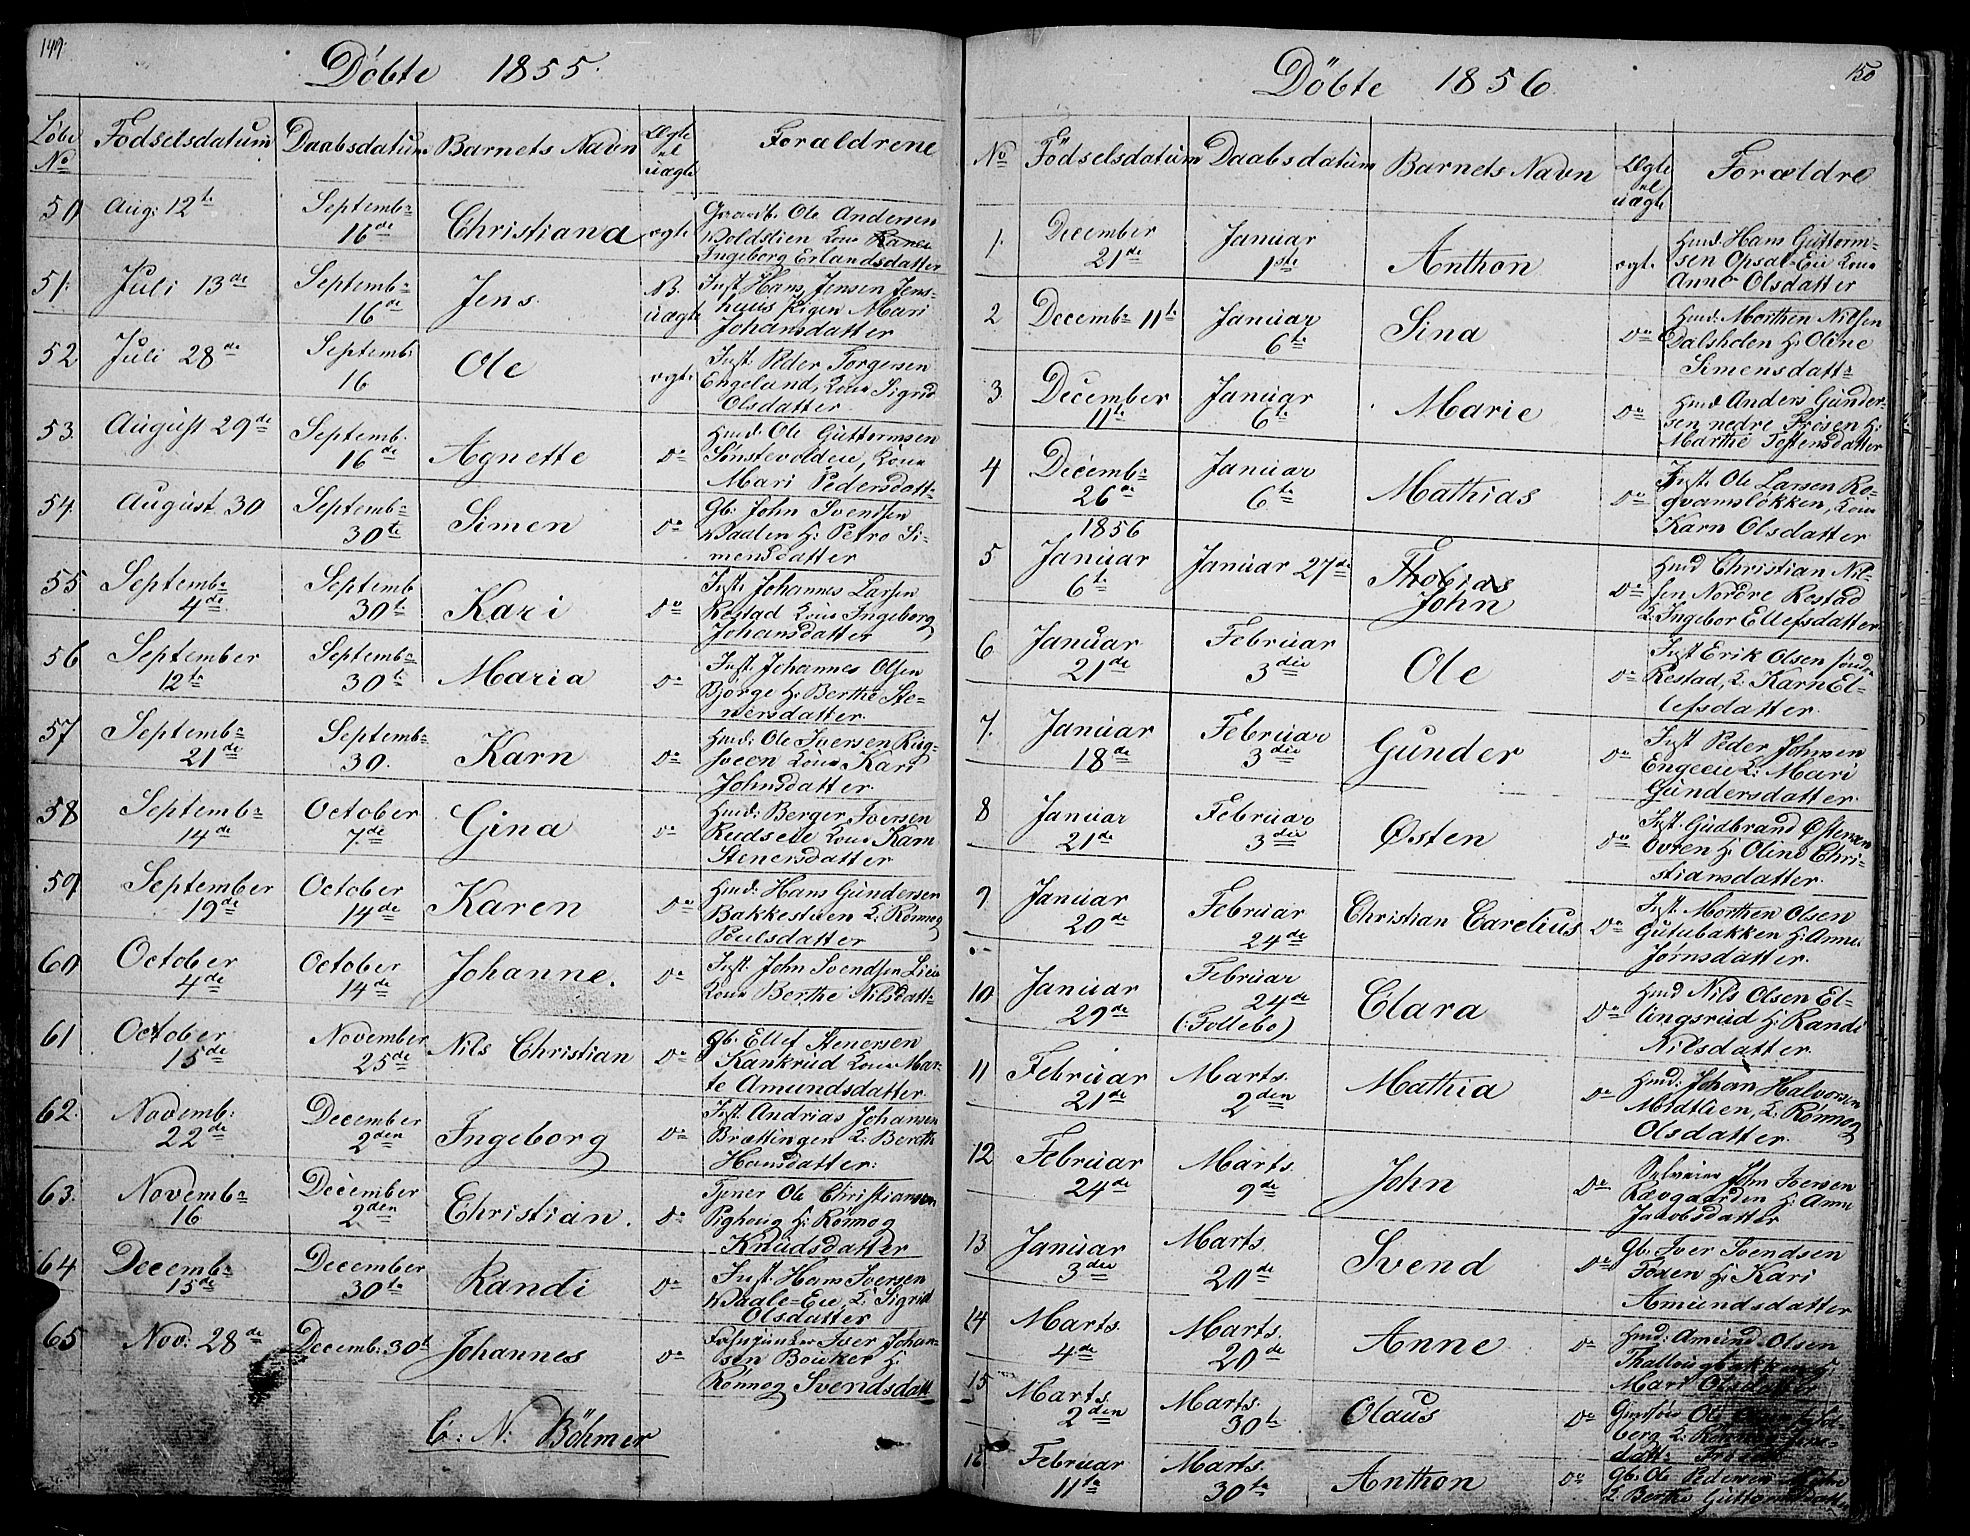 149.
Döbte 1855.
Löbe No
Födselsdatum Daabsdatum Barnets Navn Ægte el uægte Forældrene
50 Aug: 12te Septembr 16de Christiana ægte Gaardb. Ole Andersen
Kone Karen
Ingeborg Erlandsdatter
51. Juli 13de Septembr 16de Jens NB. uægte Inst Hans Jensen Jens-
huus Pigen Mari
Johansdatter
52 Juli 28de Septemb: 16 Ole ægt. Inst. Peder Torgersen
Engeland, Kone Sigrid
Olsdatter
53. August 29de Septemb. 16de Agnette Do Huusd: Ole Guttormsen
Kone
Mari Pedersdattr
54. August 30 Septembr 30te Simen Do gb: John Svendsen
Baaden H: Petro Si-
mensdatter
55 Septembr 4de Septemb 30te Kari Do Inst. Johannes Larsen
Restad Kone Ingeborg
Johansdatter
56 September 12te Septembr 30te Maria Do Inst. Johannes Olsen
Bjorge H: Berthe Ste-
nersdatter.
57 Septembr 21de Septembr 30. Karn Do Huusd: Ole Iversen Rug-
sveen Kone Kari
Johnsdatter
58 Septembr 14de October 7de Gina Do Huusd: Berger Iversen
Rudseie Kone Karn
Stenersdatter
59 September 19de October 14de Karen Do Huusd: Hans Gundersen
Bakkestuen K: Rønnog
Poulsdatter
60 October 4de October 14de Johanne. Do Inst. John Svendsen Lien
Kone Berthe Nilsdattr
61 October 15de November 25de Nils Christian Do gb. Ellef Stenersen
Kankrud Kone Mar-
te Amundsdatter
62. Novemb: 22de December 2den Ingeborg Do Inst. Andrias Johansen
Brættingen K: Berethe
Hansdatter:
63. Novembr 16 December 2den Christian. Do Tjener Ole Christiansen
Pighoug H: Rønnog
Knudsdatter
64 Decembr 15de December 30te Randi Do Inst. Hans Iversen
Baale=Eie K: Sigrid
Olsdatter
65 Nov: 28de Decemb: 30te Johannes Do Iver Johan-
sen H:
Rønnog Svendsdatt
C: N: Böhmer

150
Döbte 1856
No Födselsdatum Daabsdatum Barnets Navn Ægte el uægte Forældre
1. December 21de Januar 1ste Anthon ægt. Huusd: Hans Guttorm-
sen Opsal=Eie Kone
Anne Olsdatter
2 Decembr 11te Januar 6te Sina Do Huusd: Morthen Nilsen
H: Oline
Simensdattr
3 December 11te Januar 6te Marie Do Huusd Anders Gunder-
sen nedre Frøsen H:
Marthe Toftensdatter
4 Decembr 26de Januar 6te Mathias Do Inst: Ole Larsen Ro-
qvamsløkken, Kone
Karn Olsdatter
1856
5 Januar 6te Januar 27de Thobias
John Do Huusd Christian Nil-
sen Nordre Restad
K: Ingebor Ellefsdatter
6 Januar 21de Februar 3die Ole Do Inst Erik Olsen søndr
Restad, K: Karn El-
lefsdatter
7. Januar 18de Februar 3die Gunder Do Inst Peder Johnsen
Engeeie K: Mari
Gundersdatter
8 Januar 21de Februar 3die Østen Do Inst. Gudbrand Østensen
Ovren H: Oline Chri-
stiansdatter.
9 Januar 20de Februar 24de Christian Carelius Do Inst: Morthen Olsen
Gutubakken H: Anne
Jørnsdatter.
10 Januar 29de Februar 24de
(: Follebo) Clara Do Huusd Nils Olsen El-
lingsrud H: Randi
Nilsdatter
11 Februar 21de Marts. 2den Mathia Do Huusd: Johan Halvorsen
Midtlien, K: Rønnog
Olsdatter
12 Februar 24de Marts. 9de John Do Selveier John Iversen
Rævgaarden H: Anne
Jacobsdatter
13 Januar 3die Marts. 20de Svend Do gb. Iver Svendsen
H: Kari
Amundsdatter
14 Marts. 4de Marts. 20de Anne Do Huusd: Amund Olsen
Thallougbakken H:
Mari Olsdatter
15 Marts. 2den Marts. 30te Olaus Do Ole
berg K:
datt:
16 Februar 11te Marts. 30te Anthon Do gb: Ole Pedersen
K: Berthe Guttormsdatter